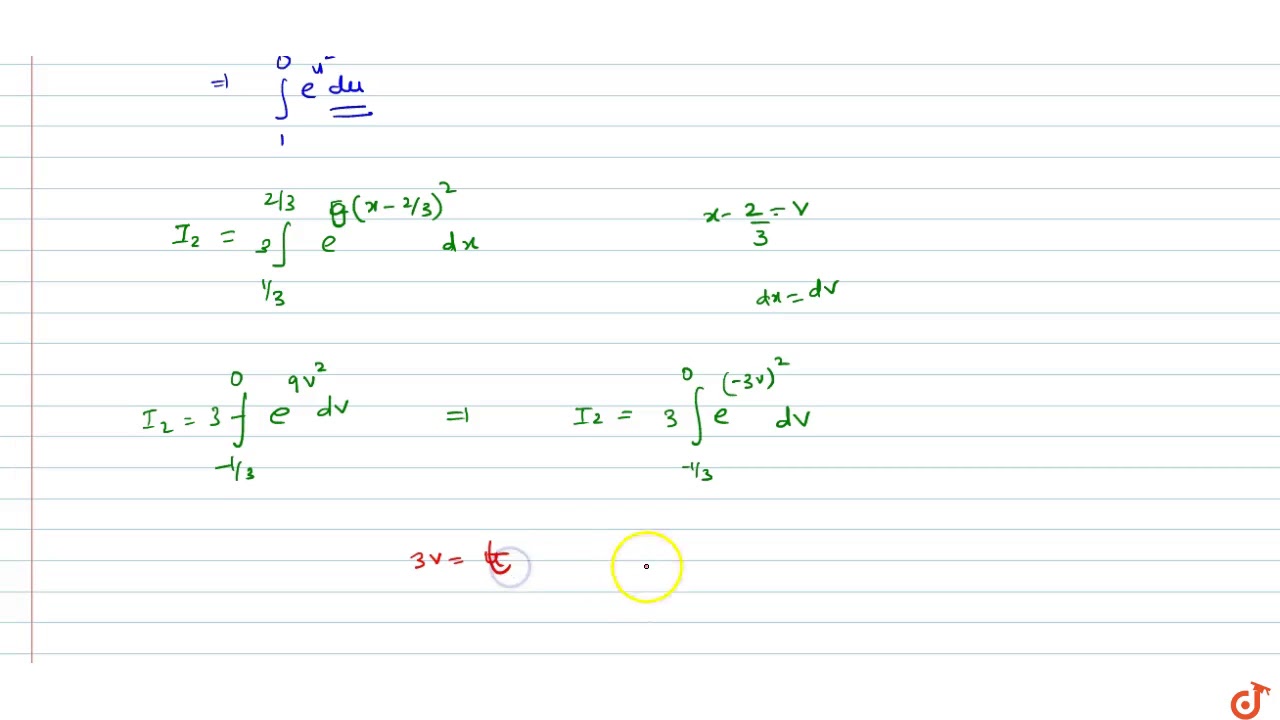 ⇒ ∫₁⁰ e^(u²) du
I₂ = 3 ∫_(1/3)^(2/3) e^(9(x - 2/3)²) dx
x - 2/3 = v
dx = dv
I₂ = 3 ∫_(-1/3)^0 e^(9v²) dv ⇒ I₂ = 3 ∫_(-1/3)^0 e^((-3v)²) dv
3v = t